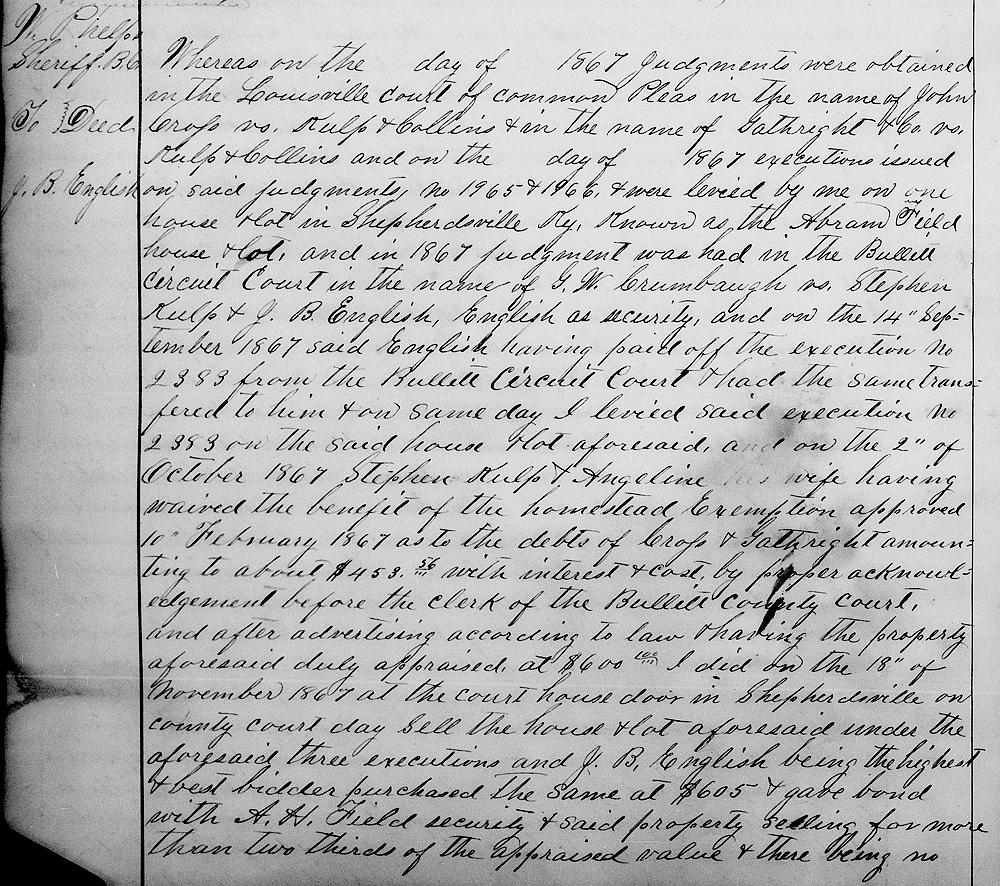 W. Phelps
Sheriff. B.C
To } Deed
J. B. English
Whereas on the day of 1867 Judgments were obtained
in the Louisville court of common Pleas in the name of John
Cross vs. Kulp & Collins & in the name of Gathright & Co. vs.
Kulp & Collins and on the day of 1867 executions issued
on said judgments, no 1965 & 1966, & were levied by me on one
house & lot in Shepherdsville Ky. Known as the Abram Field
house & lot, and in 1867 judgment was had in the Bullitt
Circuit Court in the name of G. W. Crumbaugh vs. Stephen
Kulp & J. B. English, English as security, and on the 14" Sep=
tember 1867 said English having paid off the execution no
2383 from the Bullitt Circuit Court & had the same trans=
fered to him & on same day I levied said execution no
2383 on the said house & lot aforesaid, and on the 2" of
October 1867 Stephen Kulp & Angeline his wife having
waived the benefit of the homestead Exemption approved
10" February 1867 as to the debts of Cross & Gathright amoun=
ting to about $453.56 with interest & cost, by proper acknowl=
edgement before the clerk of the Bullitt county court,
and after advertising according to law & having the property
aforesaid duly appraised, at $600 I did on the 18" of
November 1867 at the court house door in Shepherdsville on
county court day Sell the house & lot aforesaid under the
aforesaid three executions and J. B. English being the highest
& best bidder purchased the same at $605 & gave bond
with A. H. Field security & said property selling for more
than two thirds of the appraised value & there being no